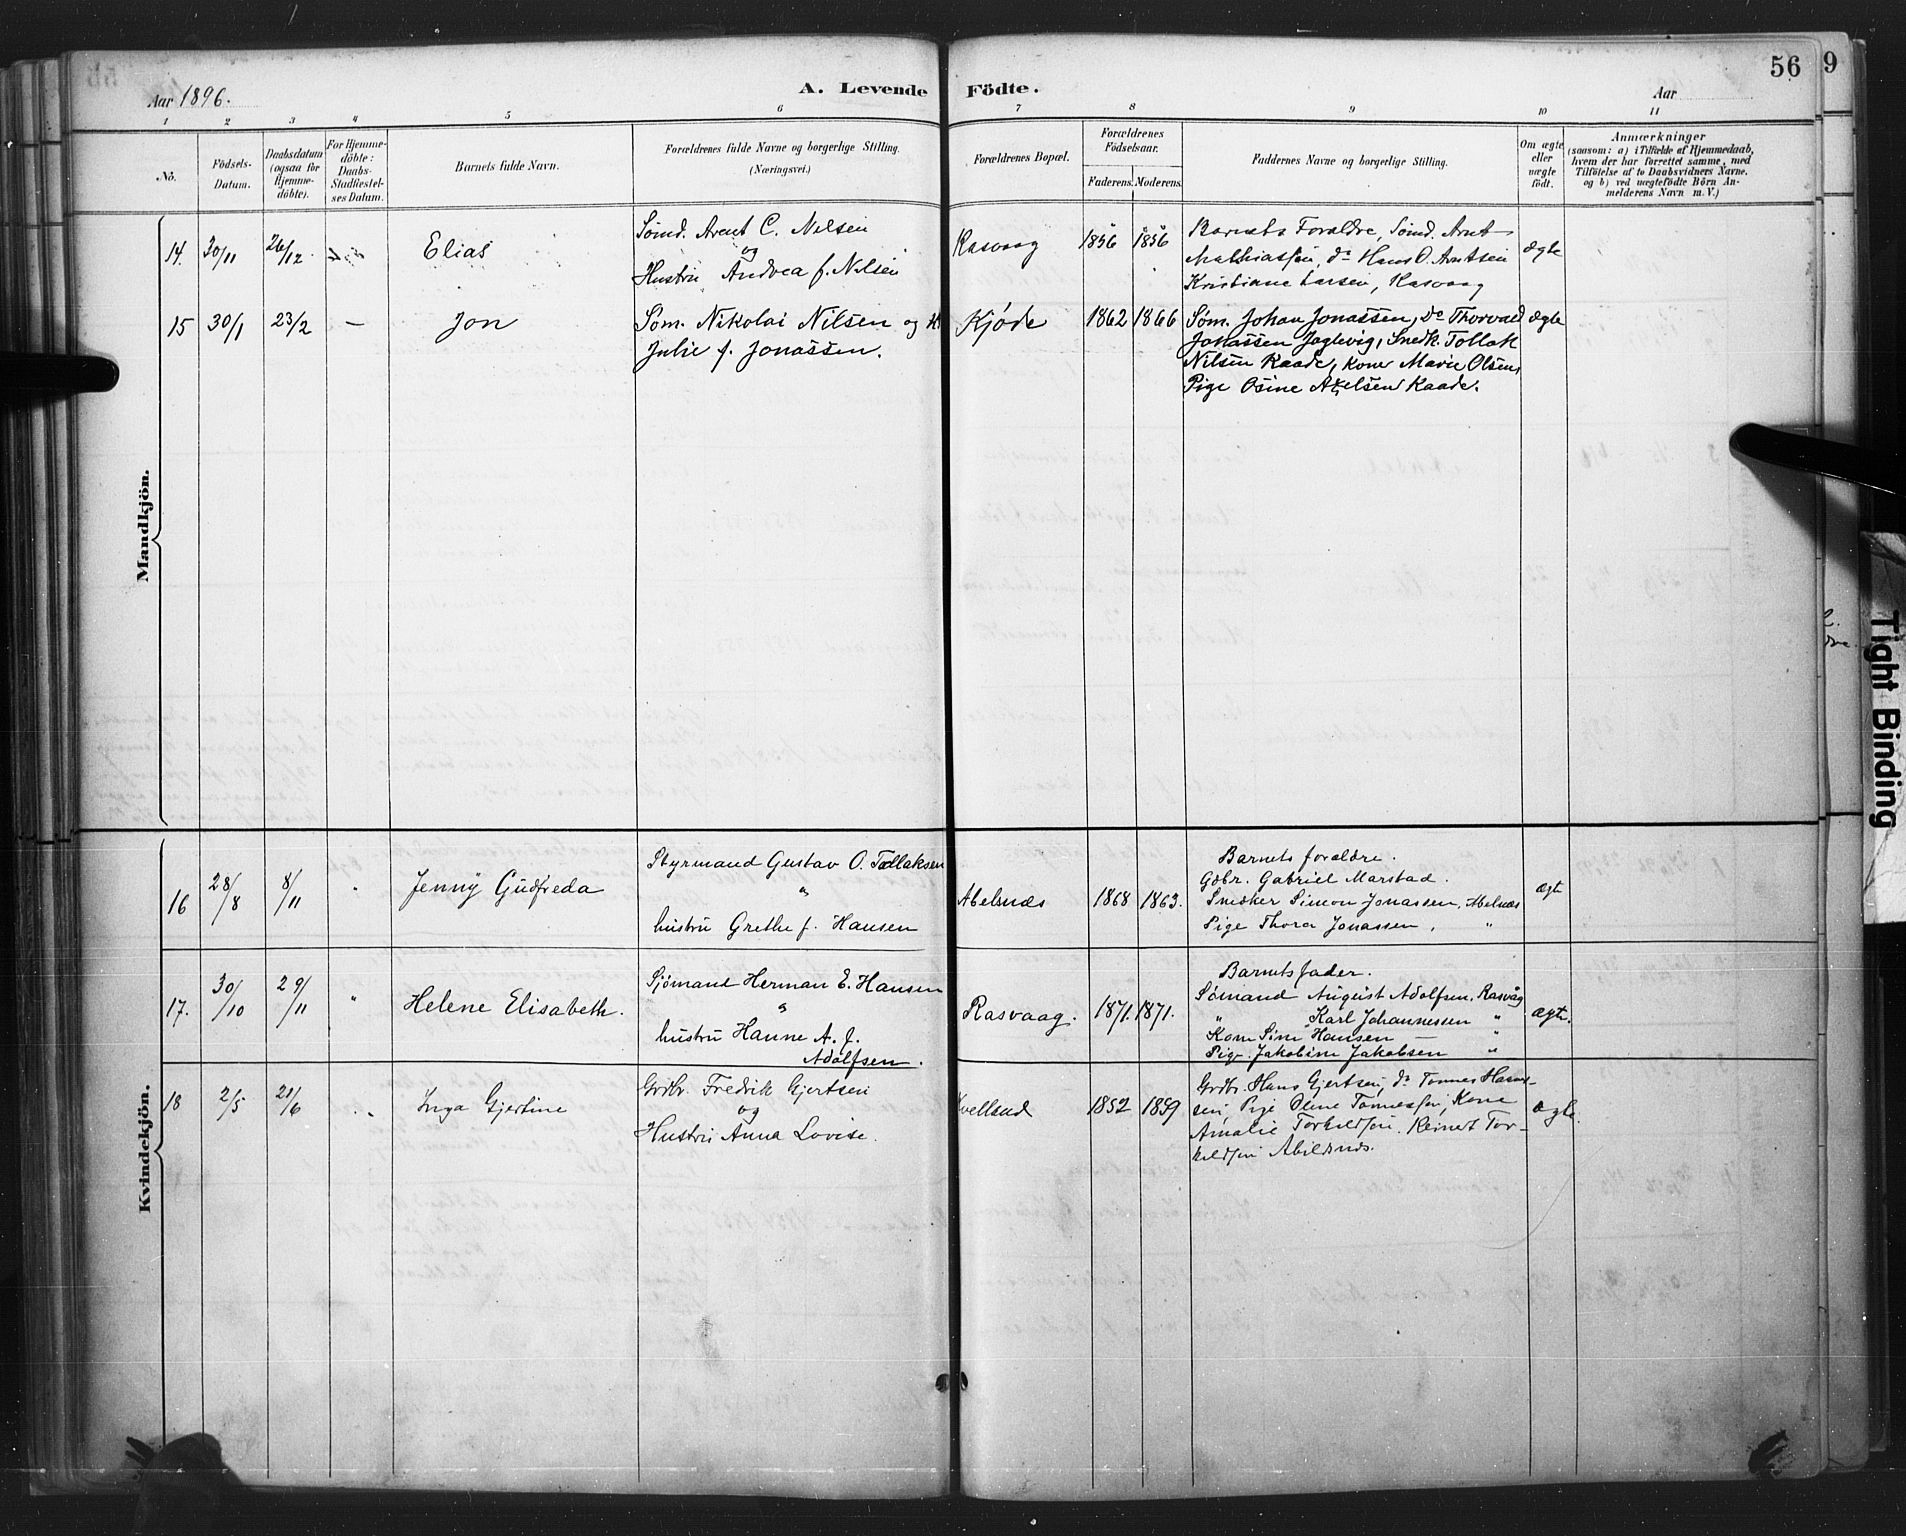 56
9
Aar 1896.
A. Levende Födte.
Aar
1 2 3 4 5 6 7 8 9 10 11
No.
Födsels-
Datum.
Daabsdatum
(ogsaa for
Hjemme-
döbte).
For Hjemme-
döbte:
Daabs-
Stadfæstel-
ses Datum.
Barnets fulde Navn.
Forældrenes fulde Navne og borgerlige Stilling.
(Næringsvei.)
Forældrenes Bopæl.
Forældrenes
Födselsaar.
Faderens. Moderens.
Faddernes Navne og borgerlige Stilling.
Om ægte
eller
uægte
födt.
Anmærkninger
(saasom: a) i Tilfælde af Hjemmedaab,
hvem der har forrettet samme, med
Tilföielse af to Daabsvidners Navne,
og b) ved uægtefödte Börn An-
melderens Navn m. V.)
Mandkjön.
14. 30/11 26/12 Elias
Sømd. Arent C. Nilsen
og
Hustru Andrea f. Nilsen
Rasvaag 1856 1856
Barnets Forældre, Sømd. Arnt
Mathiassen, do Hans O. Arntsen
Kristiane Larsen, Rasvaag
ægte
15 30/1 23/2 — Jon
Søm. Nikolai Nilsen og H.
Julie f. Jonassen.
Kjøde 1862 1866
Søm. Johan Jonassen, Do Thorvald
Jonassen Joglevig, Snedk. Tollak
Nilsen Raade, Kone Marie Olsen,
Pige Osine Axelsen Raade.
ægte
Kvindekjön.
16 28/8 8/11 " Jenny Gudfreda
Styrmand Gustav O. Tollaksen
"
hustru Grethe f. Hansen
Abelsnæs 1868 1863.
Barnets forældre.
Gdbr. Gabriel Marstad.
Snedker Simon Jonassen, Abelnæs
Pige Thora Jonassen, "
ægt
17. 30/10 29/11 " Helene Elisabeth.
Sjömand Herman E. Hansen
"
hustru Hanne A. f.
Adolfsen.
Rasvaag. 1871. 1871.
Barnets fader.
Sömand August Adolfsen, Rasvåg
" Karl Johannessen "
Kone Sine Hansen "
Pige Jakobine Jakobsen "
ægte.
18 2/5 21/6 " Inga Gjertine
Grdbr. Fredrik Gjertsen
og
Hustru Anna Lovise.
1852 1859
Grdbr. Hans Gjertsen, do Tønnes Han-
sen, Pige Oline Tønnessen, Kone
Amalie Torkildsen, Reinert Tor-
kildsen Abelsnæs.
Ægte.
Tight Binding